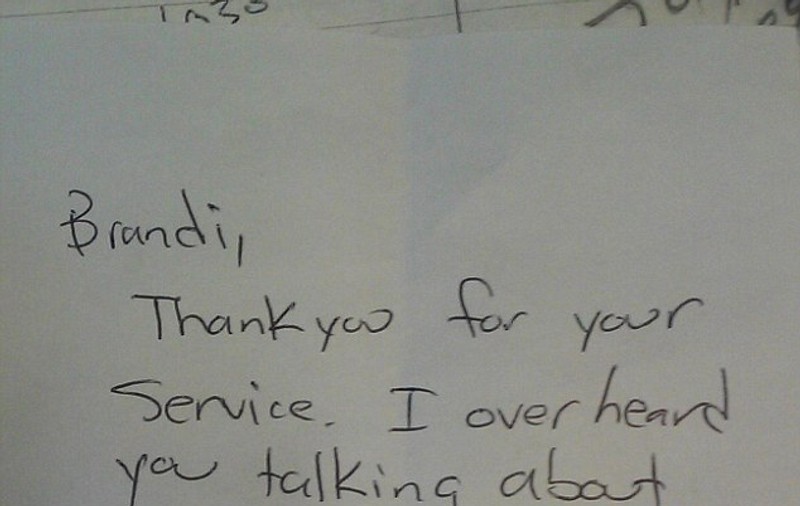 Brandi,
Thank you for your
Service. I overheard
you talking about